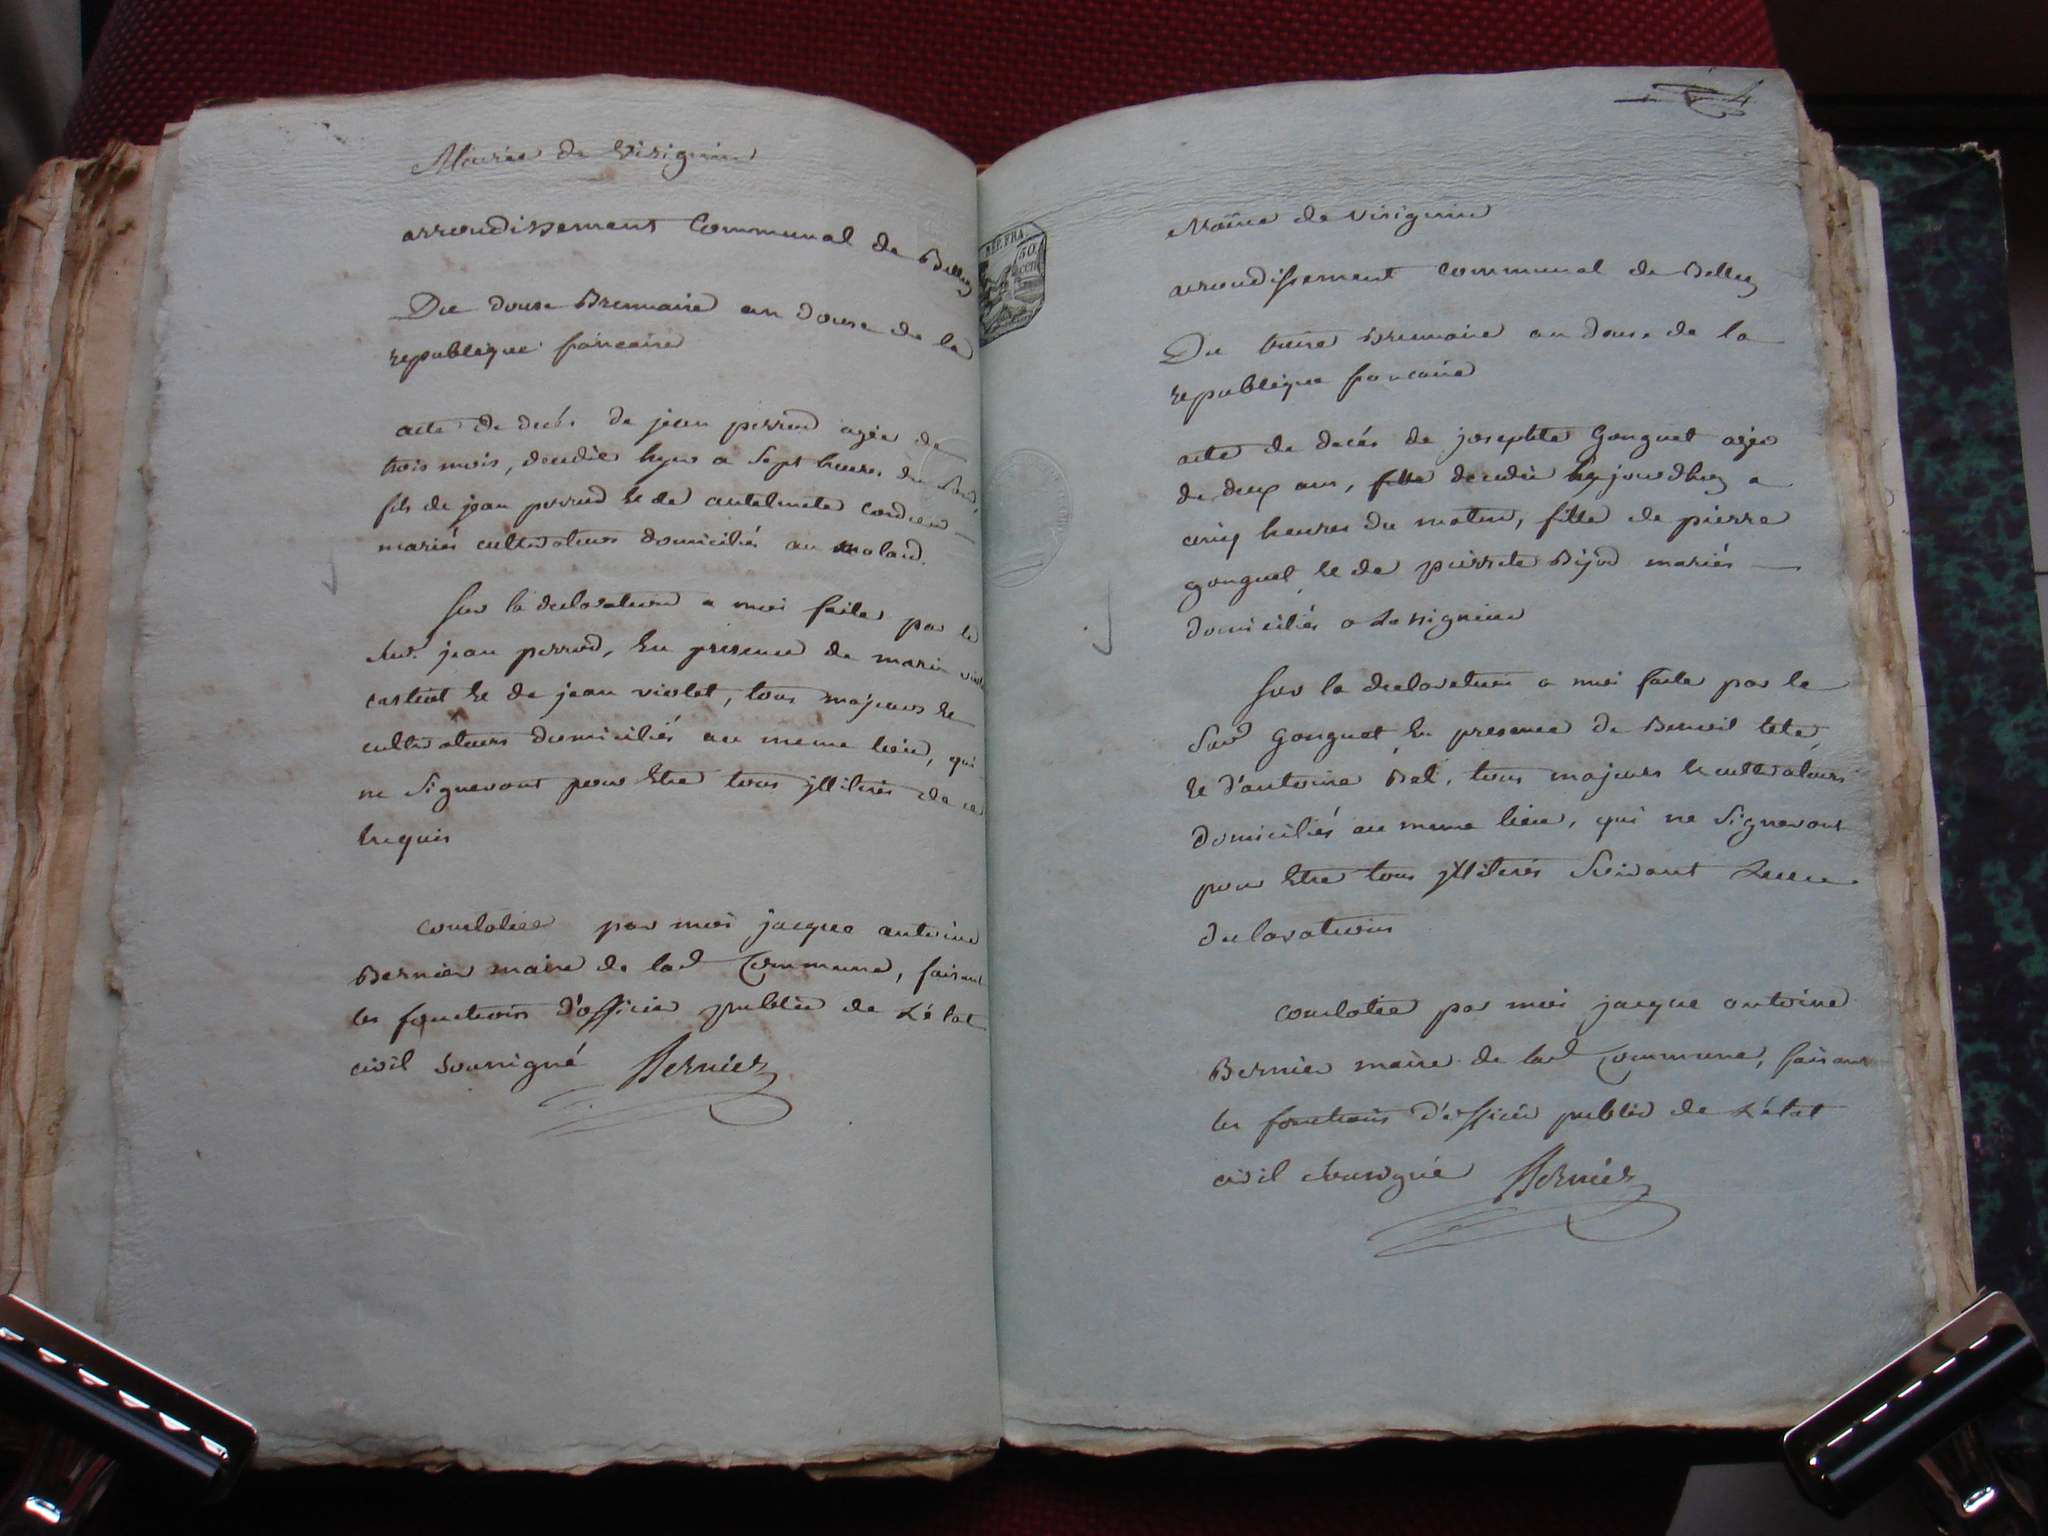 Mairie de Virignin
arrondissement Communal de Belley
Du douse Brumaire an douse de la
republique francaise
acte de decés de jean perrud agée de
trois mois, decedée hyer a Sept heures du
fils de jean perrud et de antelmete cordier
mariés cultivateurs domiciliés au moland.
Sur la declaration a moi faite par le
jean perrud, En presence de marin
et de jean violet, tous majeurs et
cultivateurs domiciliés au meme lieu, qui
ne Signeront pour Etre tous illitirés de ce
Enquis
constatée par moi jacque antoine
Bernier maire de lad Commune, faisant
les fonctions d'officier public de L'état
civil soussigné Bernier
Mairie de Virignin
arrondissement Communal de Belley
Du treise Brumaire an douse de la
republique francaise
acte de decés de josephte Gonguet agée
de deux ans, decedée hujourdhuy a
cinq heures du matin, fille de pierre
gonguet et de pierrete Bijod mariés
domiciliés a
Sur la declaration a moi faite par le
Gonguet En presence de Benoit tete,
et d'antoine Bal, tous majeurs et cultivateurs
domiciliés au meme lieu, qui ne Signeront
pour Etre tous illitirés Suivant Leur
declarations
constatée par moi jacque antoine
Bernier maire de lad Commune, faisant
les fonctions d'officier public de L'état
civil soussigné Bernier
REP. FRA.
50
CEN